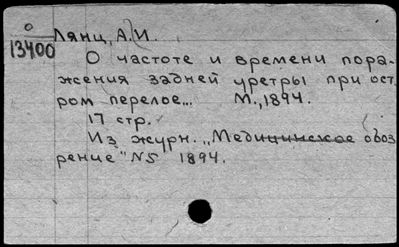 Лянц, А.И.
13400
О частоте и времени пора-
жения задней уретры при ост
ром перелое... М., 1894.
17 стр.
Из журн. "Медицинское обоз
рение" N5 1894.